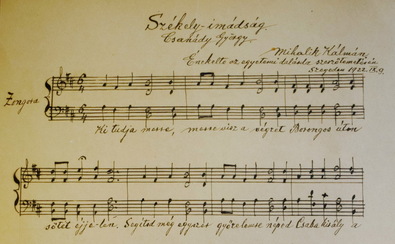 Székely-imádság
Csanády György
Mihalik Kálmán
Énekelte az egyetemi dalárda
Szegeden 1922.
Zongora
Ki tudja merre, merre visz a végzet Borongós úton
sötét éjjelen. Segítsd még egyszer győzelemre néped Csaba király a